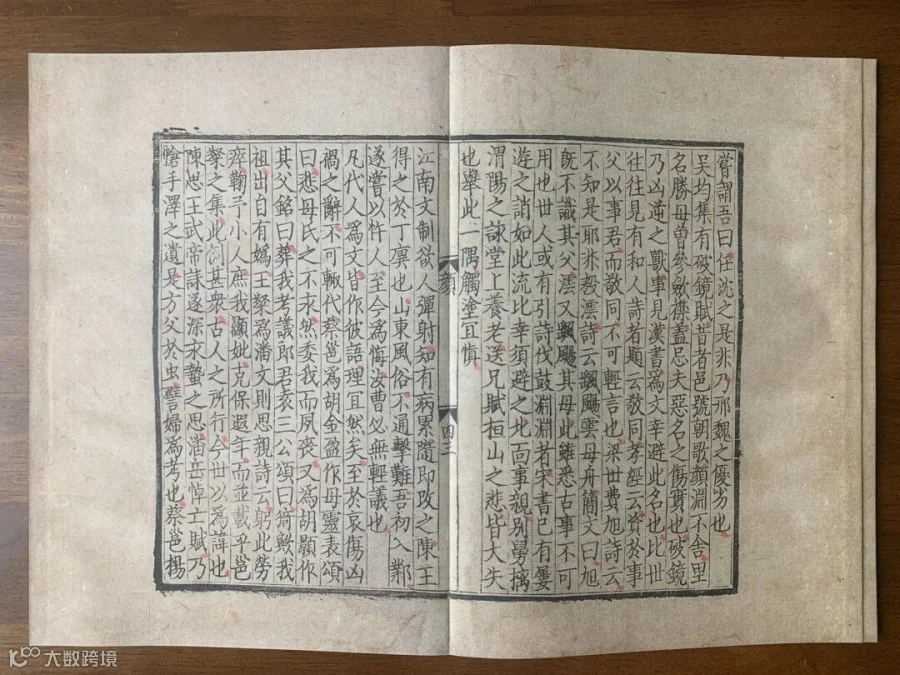 嘗謂吾曰任沈之是非乃邢魏之優劣也
吳均集有破鏡賦昔者邑號朝歌顏淵不舍里
名勝母曾參斂襟蓋忌夫惡名之傷實也破鏡
乃凶逆之獸事見漢書為文幸避此名也比世
往往見有和人詩者題云敬同孝經云資於事
父以事君而敬同不可輕言也梁世費旭詩云
不知是耶非殷澐詩云飊颺雲母舟簡文曰旭
既不識其父澐又飊颺其母此雖悉古事不可
用也世人或有引詩伐鼓淵淵者宋書已有屢
遊之誚如此流比幸須避之北面事親別舅摛
渭陽之詠堂上養老送兄賦桓山之悲皆大失
也舉此一隅觸塗宜慎
顏
四二
江南文制欲人彈射知有病累隨即改之陳王
得之於丁廙也山東風俗不通擊難吾初入鄴
遂嘗以忤人至今為悔汝曹必無輕議也
凡代人為文皆作彼語理宜然矣至於哀傷凶
禍之辭不可輒代蔡邕為胡金盈作母靈表頌
曰悲母氏之不永然委我而夙喪又為胡顥作
其父銘曰葬我考議郎君袁三公頌曰猗歟我
祖出自有媯王粲為潘文則思親詩云躬此勞
瘁鞠予小人庶我顯妣克保遐年而並載乎邕
粲之集此例甚衆古人之所行今世以為諱也
陳思王武帝誄遂深永蟄之思潘岳悼亡賦乃
愴手澤之遺是方父於虫譬婦為考也蔡邕楊
大数跨境